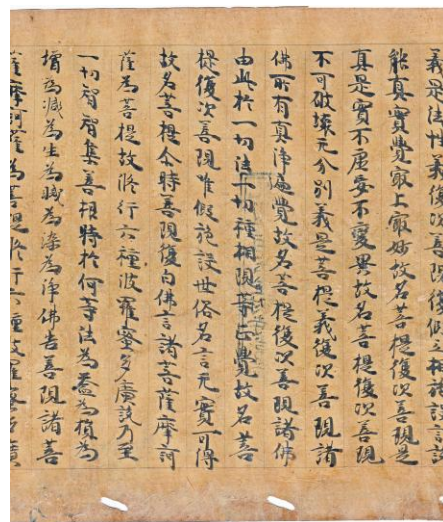 義是法性義復次善現假立相施設言說
能真實覺冣上冣妙故名菩提復次善現是
真是實不虛妄不變異故名菩提復次善現
不可破壞无分別義是菩提義復次善現諸
佛所有真淨遍覺故名菩提復次善現諸佛
由此於一切法一切種相現等正覺故名菩
提復次善現唯假施設世俗名言无實可得
故名菩提尒時善現復白佛言諸菩薩摩訶
薩為菩提故修行六種波羅蜜多廣說乃至
一切智智集善根時於何等法為益為損為
增為減為生為滅為染為淨佛告善現諸菩
薩摩訶薩為菩提修行六種波羅蜜多廣